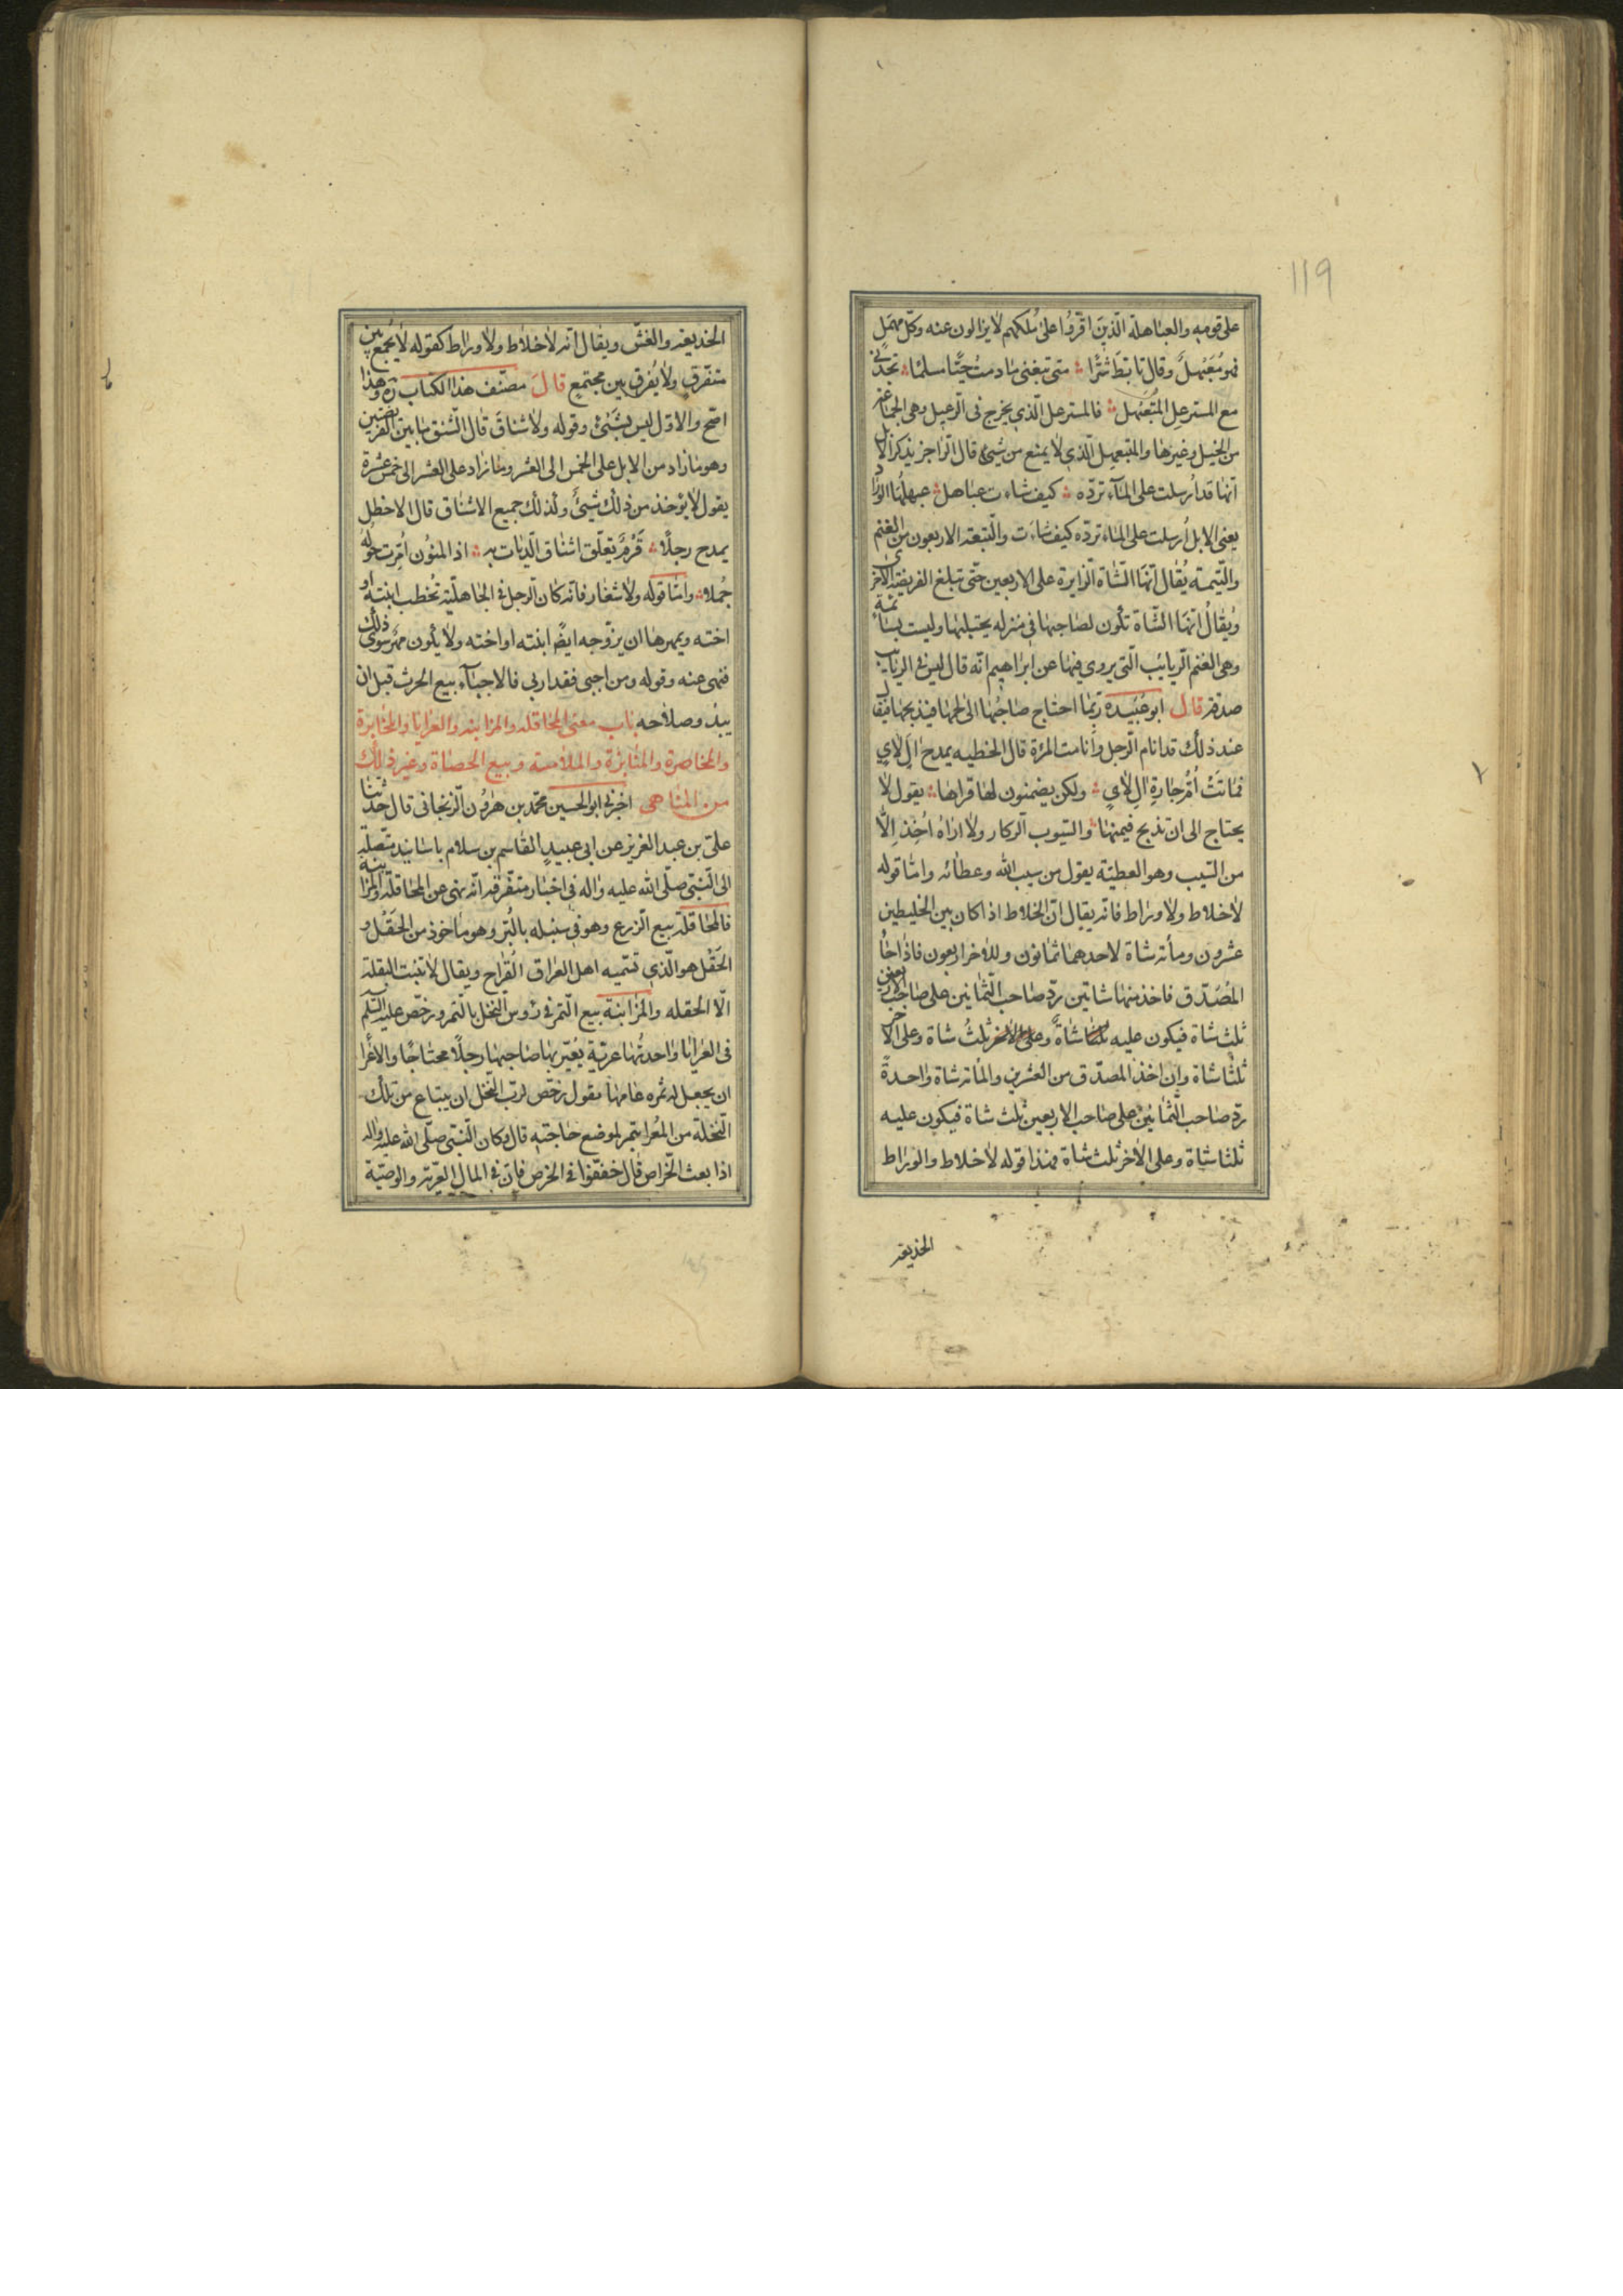 ١١٩
على قومه والعباهلة الّذين اقرّوا على ملكهم لا يزالون عنه وكلّ مهمل
فهو مُعَبْهلٌ وقال تابّط شرًّا متى تبغنى ما دمتُ حيًّا مسلمًا تجدنى
مع المسترعل المُتَعَبهل فالمسترعل الّذى يخرج فى الرّعيل وهى الجماعة
من الخيل وغيرها والمتعبهل الّذى لا يمنع من شيئ قال الرّاجز يذكر الابل
انّها قد أُرسلت على الماء تردّه كيف شاءت عباهل عبهلها الورّاد
يعنى الابل أُرسلت على الماء تردّه كيف شاءت والتّيعة الاربعون من الغنم
والتّيمة يُقال انّها الشّاة الزّايدة على الاربعين حتّى تبلغ الفريضة الاخرى
ويُقال انّها الشّاة تكون لصاحبها فى منزله يحتلبها وليست بسائمة
وهى الغنم الرّبايب الّتى يروى فيها عن ابراهيم انّه قال ليس فى الربايب
صدقة قال ابو عُبَيدة ربّما احتاج صاحبُها الى لحمها فيذبحها فيقال
عند ذلك قد اتام الرّجل واتامت المرءة قال الحطيه يمدح ال لاى
فما تَتْئمُ جارة ال لاى ولكن يضمنون لها قراها يقول لا
يحتاج الى ان تذبح تيمتها والسّيوب الركاز ولا اراه اُخذ الّا
من السّيب وهو العطيّة يقول من سيب الله وعطائه وامّا قوله
لا خلاط ولا وراط فانّه يقال انّ الخلاط اذا كان بين الخليطين
عشرون ومأته شاة لاحدهما ثمانون وللاخر اربعون فاذا جاء
المُصَدّق فاخذ منها شاتين ردّ صاحب الثّمانين على صاحب الاربعين
ثلث شاة فيكون عليه شاةٌ وثلثُ شاة وعلى الاخر
ثلثا شاة وان اخذ المصدّق من العشرين والمأته شاة واحدة
ردّ صاحب الثّمانين على صاحب الاربعين ثلث شاة فيكون عليه
ثلثا شاة وعلى الاخر ثلث شاة فهذا قوله لا خلاط والوراط
الخديعة
الخديعة والغشّ ويقال انّه لا خلاط ولا وراط كقوله لا يجمع بين
متفرّق ولا يُفرق بين مجتمع قال مصنّف هذا الكتاب ره وهذا
اصحّ والاوّل ليس بشَيئ وقوله ولا شناق قال الشّنق ما بين الفريضتين
وهو ما زاد من الابل على الخمس الى العشر وما زاد على العشر الى خمس عشرة
يقول لا يؤخذ من ذلك شيئٌ وكذلك جميع الاشناق قال الاخطل
يمدح رجلًا قَرْمٌ تعلّق اشناق الدّيات به اذا المئون اُمِرّت فوقه
حُملا وامّا قوله ولا شغار فانّه كان الرّجل فى الجاهليّة يُخطب ابنته او
اخته ويمهرها ان يزوّجه ايضًا ابنته او اخته ولا يكون مهر سوى ذلك
فنهى عنه وقوله ومن اجبى فقد اربى فالاجبآء بيع الحرث قبل ان
يبدو صلاحه باب معنى المحاقلة والمزابنه والعرايا والمخابرة
والمخاضرة والمنابذة والملامسة وبيع الحصاة وغير ذلك
من المناهى اخبرنى ابو الحسين محمّد بن هرون الزّنجانى قال حدّثنا
علىّ بن عبد العزيز عن ابى عبيدٍ القاسم بن سلام باسانيد متّصلة
الى النّبى صلّى الله عليه واله فى اخبار متفرّقة انّه نهى عن المحاقلة والمزابنة
فالمحاقلة بيع الزّرع وهو فى سنبله بالبُرّ وهو ماخوذ من الحَقْل و
الحَقْل هو الّذى تسمّيه اهل العراق القراح ويقال لا تنبت البقلة
الّا الحقله والمزابنة بيع التّمر فى رؤس النّخل بالتّمر ورخّص عليه السّلم
فى العرايا واحدتُها عريّة يُعيّر بها صاحبها رجلًا محتاجًا والاعرا
ان يجعل له ثمره عامها يقول رخّص لربّ النّخل ان يبتاع من تلك
النّخلة من المُعرا بتمر لموضع حاجته قال وكان النّبى صلّى الله عليه واله
اذا بعث الخرّاص قال خفّفوا فى الخرص فانّ فى المال العريّة والوصيّة